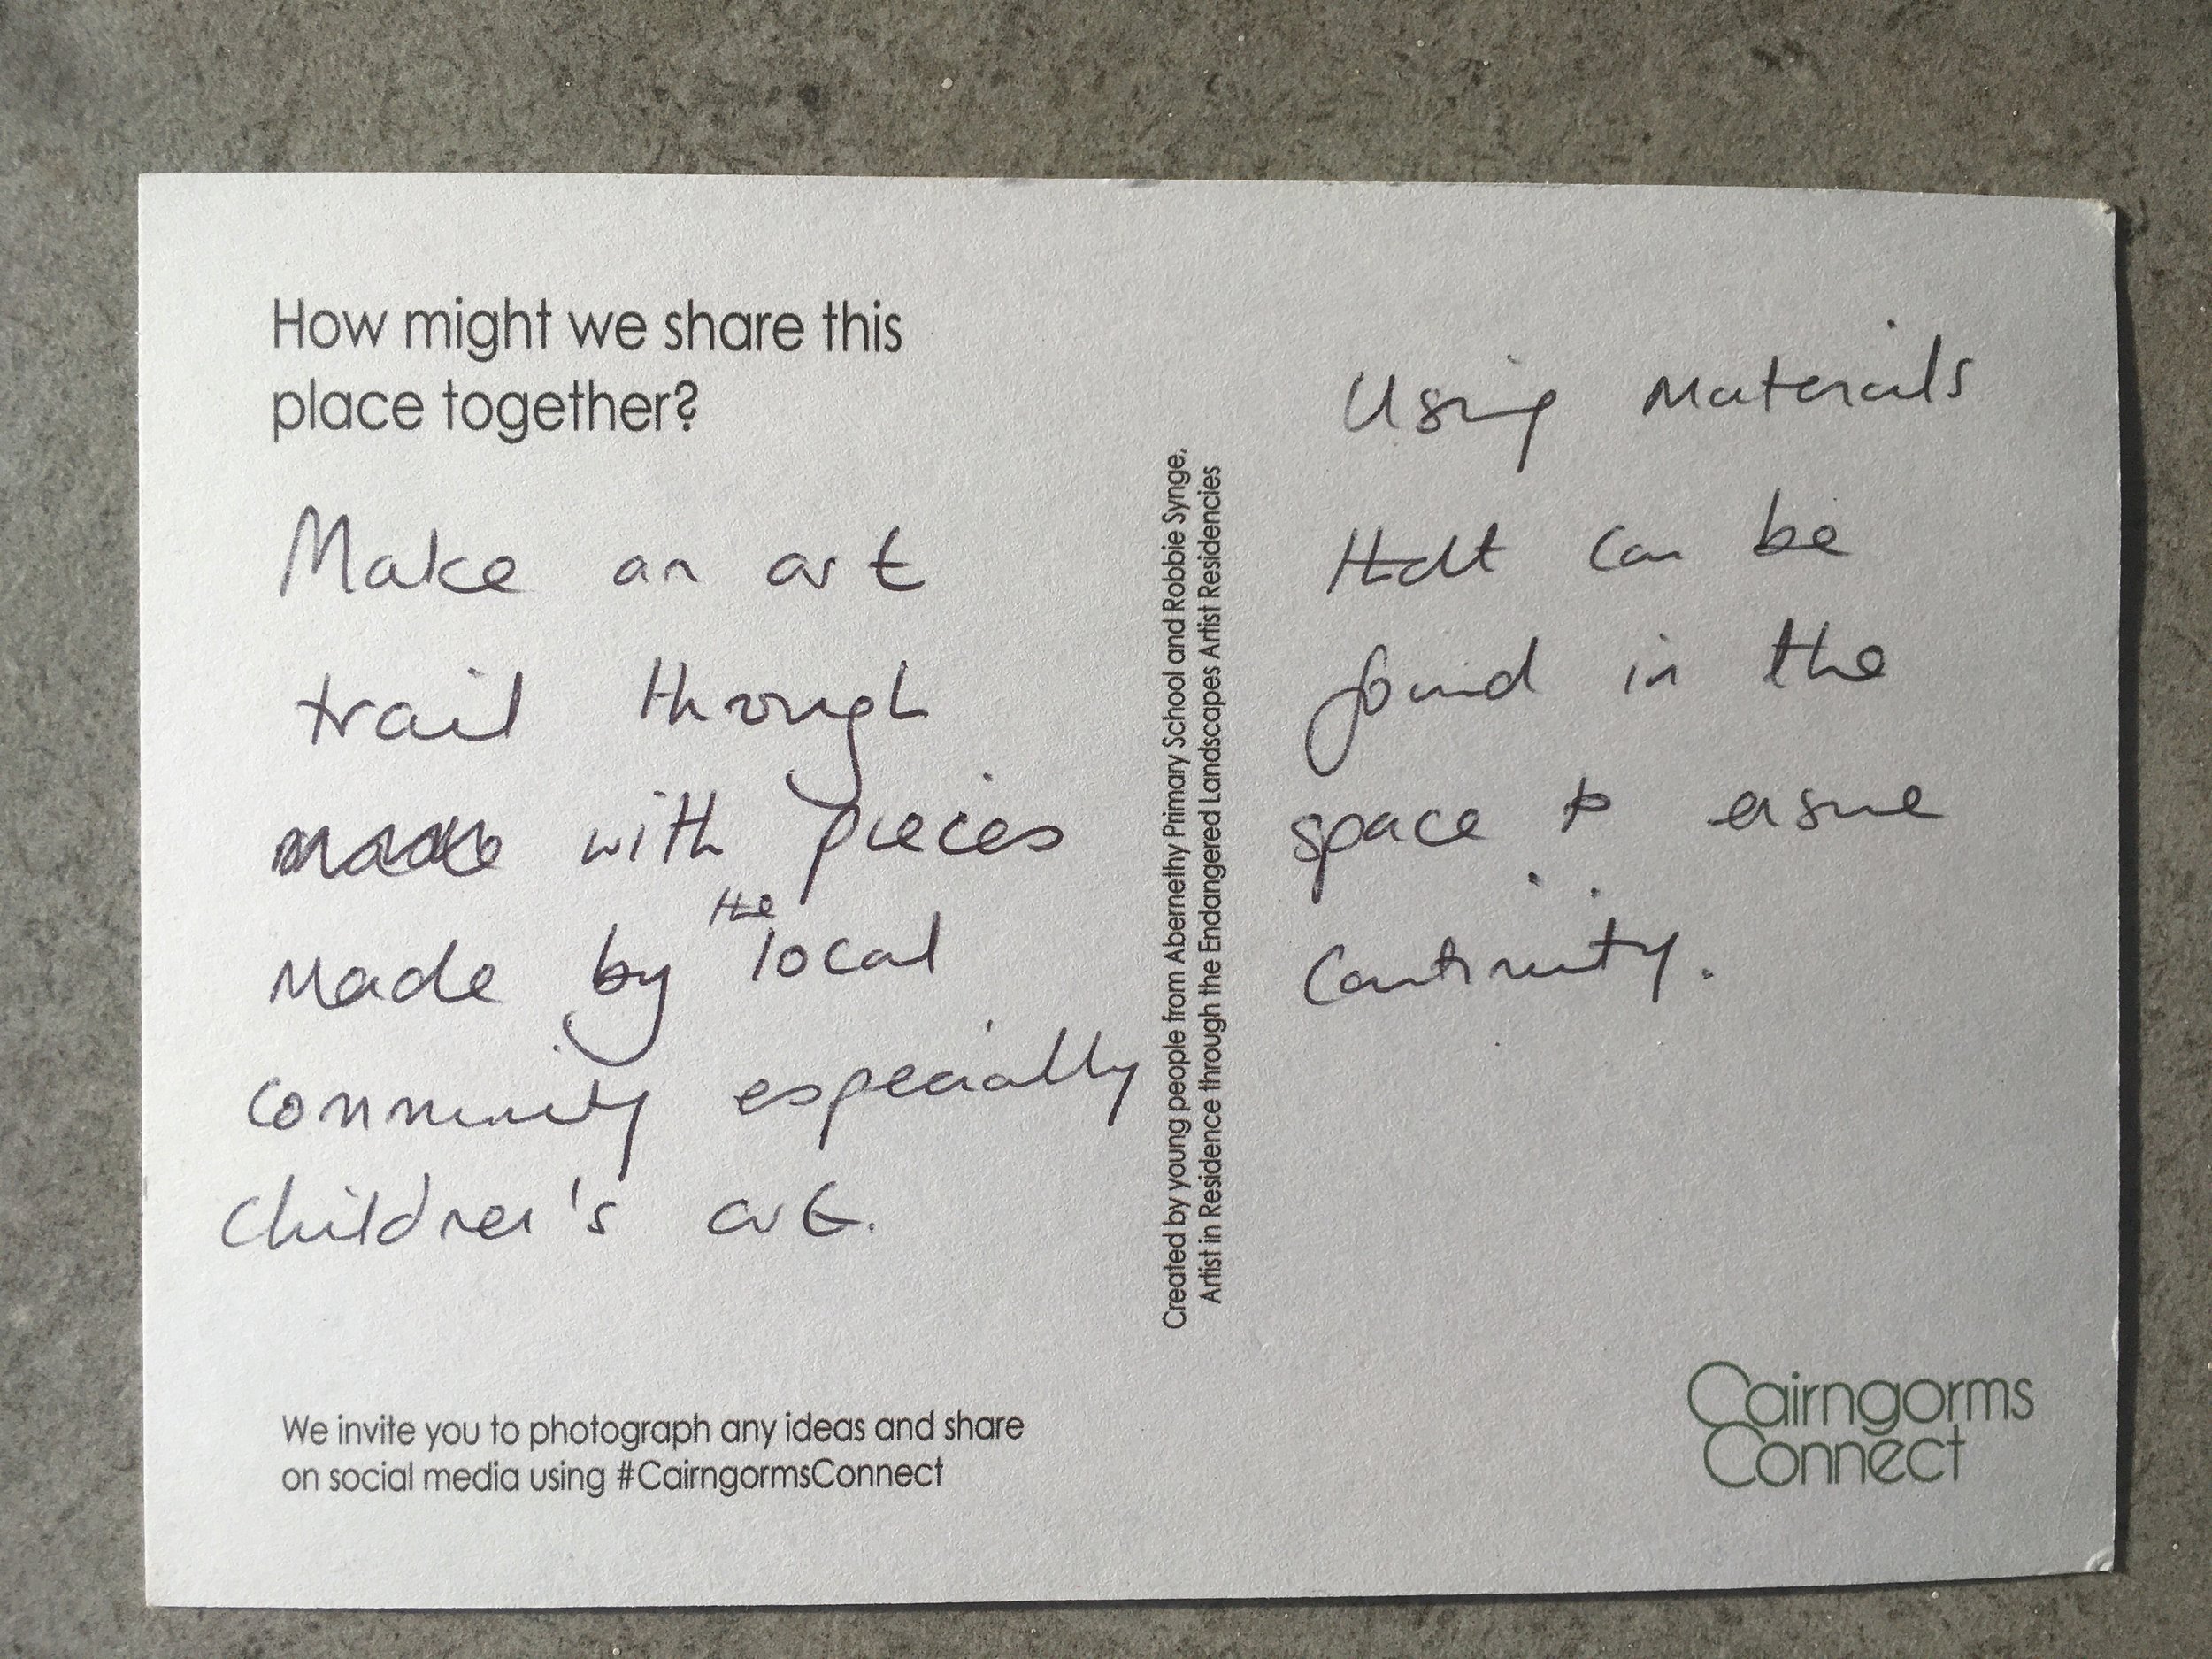 How might we share this
place together?
Make an art
trail through
with pieces
made by the local
community especially
children's art.
We invite you to photograph any ideas and share
on social media using #CairngormsConnect
Created by young people from Abernethy Primary School and Robbie Synge,
Artist in Residence through the Endangered Landscapes Artist Residencies
Using materials
that can be
found in the
space to ensure
continuity.
Cairngorms
Connect